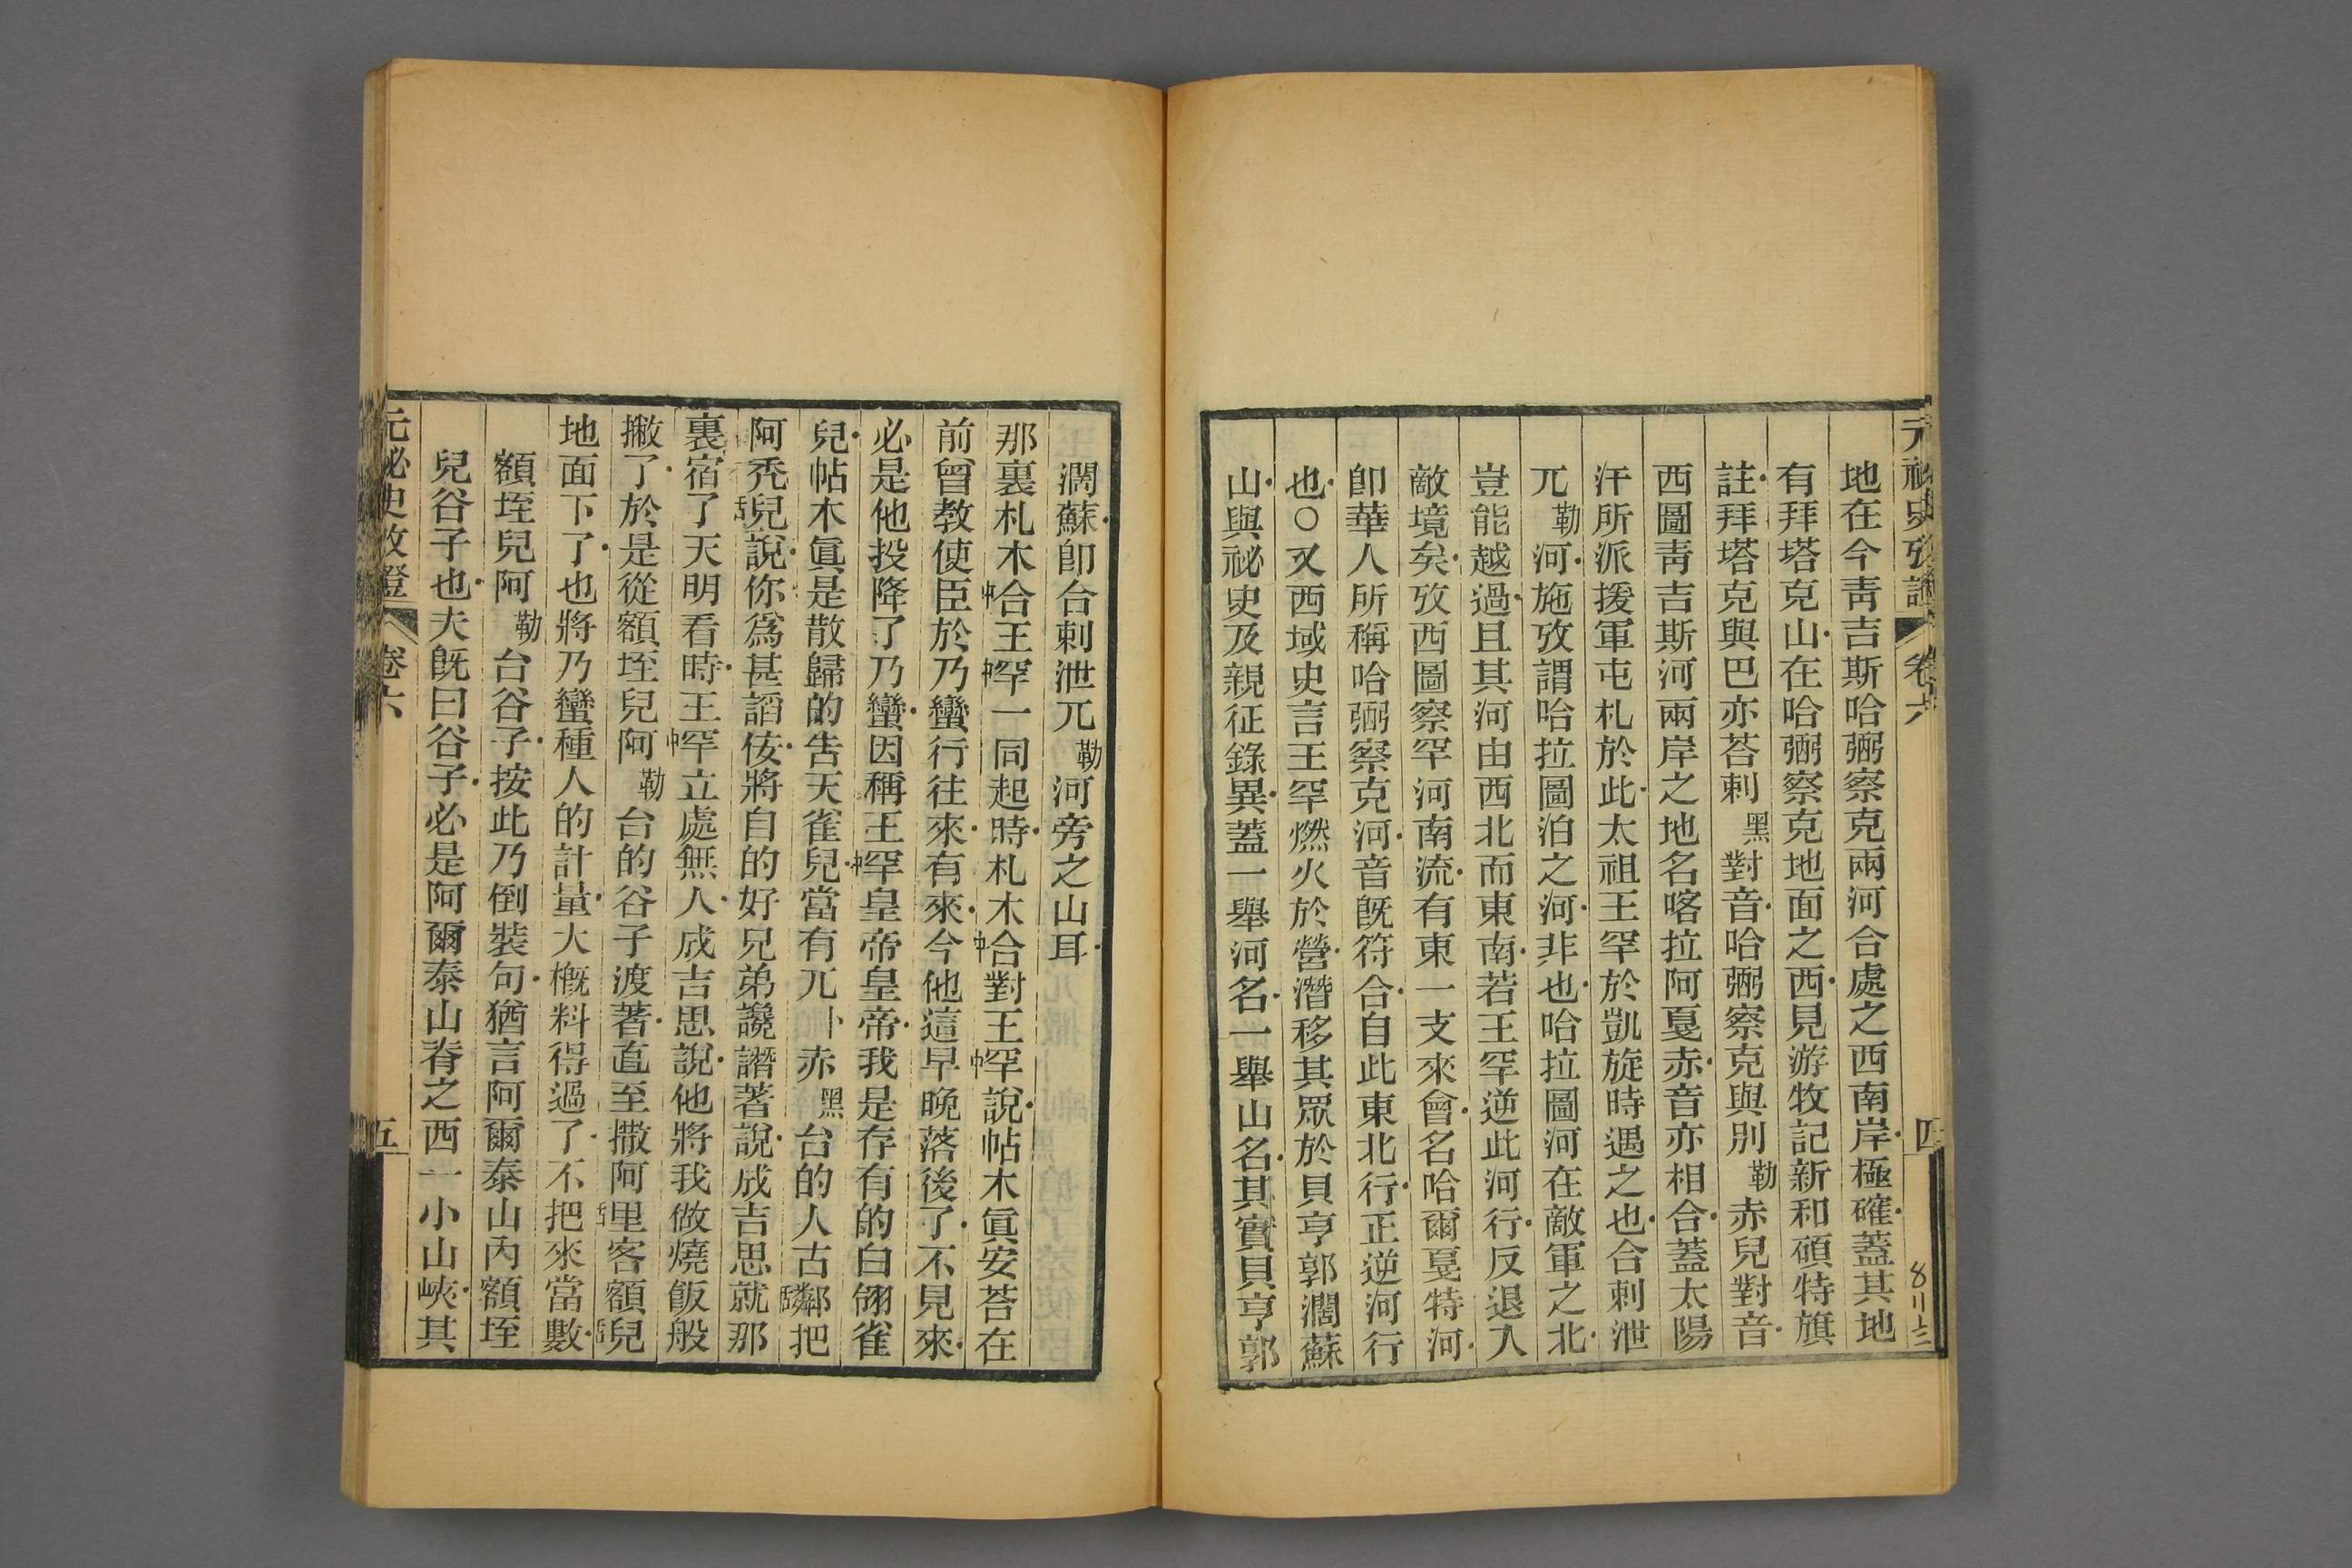 元祕史攷證 卷六 四
地在今青吉斯哈弼察克兩河合處之西南岸極確蓋其地
有拜塔克山在哈弼察克地面之西見游牧記新和碩特旗
註拜塔克與巴亦荅剌黑對音哈弼察克與別勒赤兒對音
西圖靑吉斯河兩岸之地名喀拉阿戛赤音亦相合蓋太陽
汗所派援軍屯札於此太祖王罕於凱旋時遇之也合剌泄
兀勒河施攷謂哈拉圖泊之河非也哈拉圖河在敵軍之北
豈能越過且其河由西北而東南若王罕逆此河行反退入
敵境矣攷西圖察罕河南流有東一支來會名哈爾戛特河
卽華人所稱哈弼察克河音旣符合自此東北行正逆河行
也○又西域史言王罕燃火於營潛移其眾於貝亨郭濶蘇
山與祕史及親征錄異蓋一舉河名一舉山名其實貝亨郭
濶蘇卽合剌泄兀勒河旁之山耳
那裏札木中合王中罕一同起時札木中合對王中罕說帖木眞安荅在
前曾教使臣於乃蠻行往來有來今他這早晚落後了不見來
必是他投降了乃蠻因稱王中罕皇帝皇帝我是存有的白翎雀
兒帖木眞是散歸的告天雀兒當有兀卜赤黑台的人古鄰把
阿禿兒說你爲甚謟侫將自的好兄弟讒譖著說成吉思就那
裏宿了天明看時王中罕立處無人成吉思說他將我做燒飯般
撇了於是從額垤兒阿勒台的谷子渡著直至撒阿里客額兒
地面下了也將乃蠻種人的計量大槪料得過了不把來當數
額垤兒阿勒台谷子按此乃倒裝句猶言阿爾泰山內額垤
兒谷子也夫旣曰谷子必是阿爾泰山脊之西一小山峽其
元祕史攷證 卷六 五